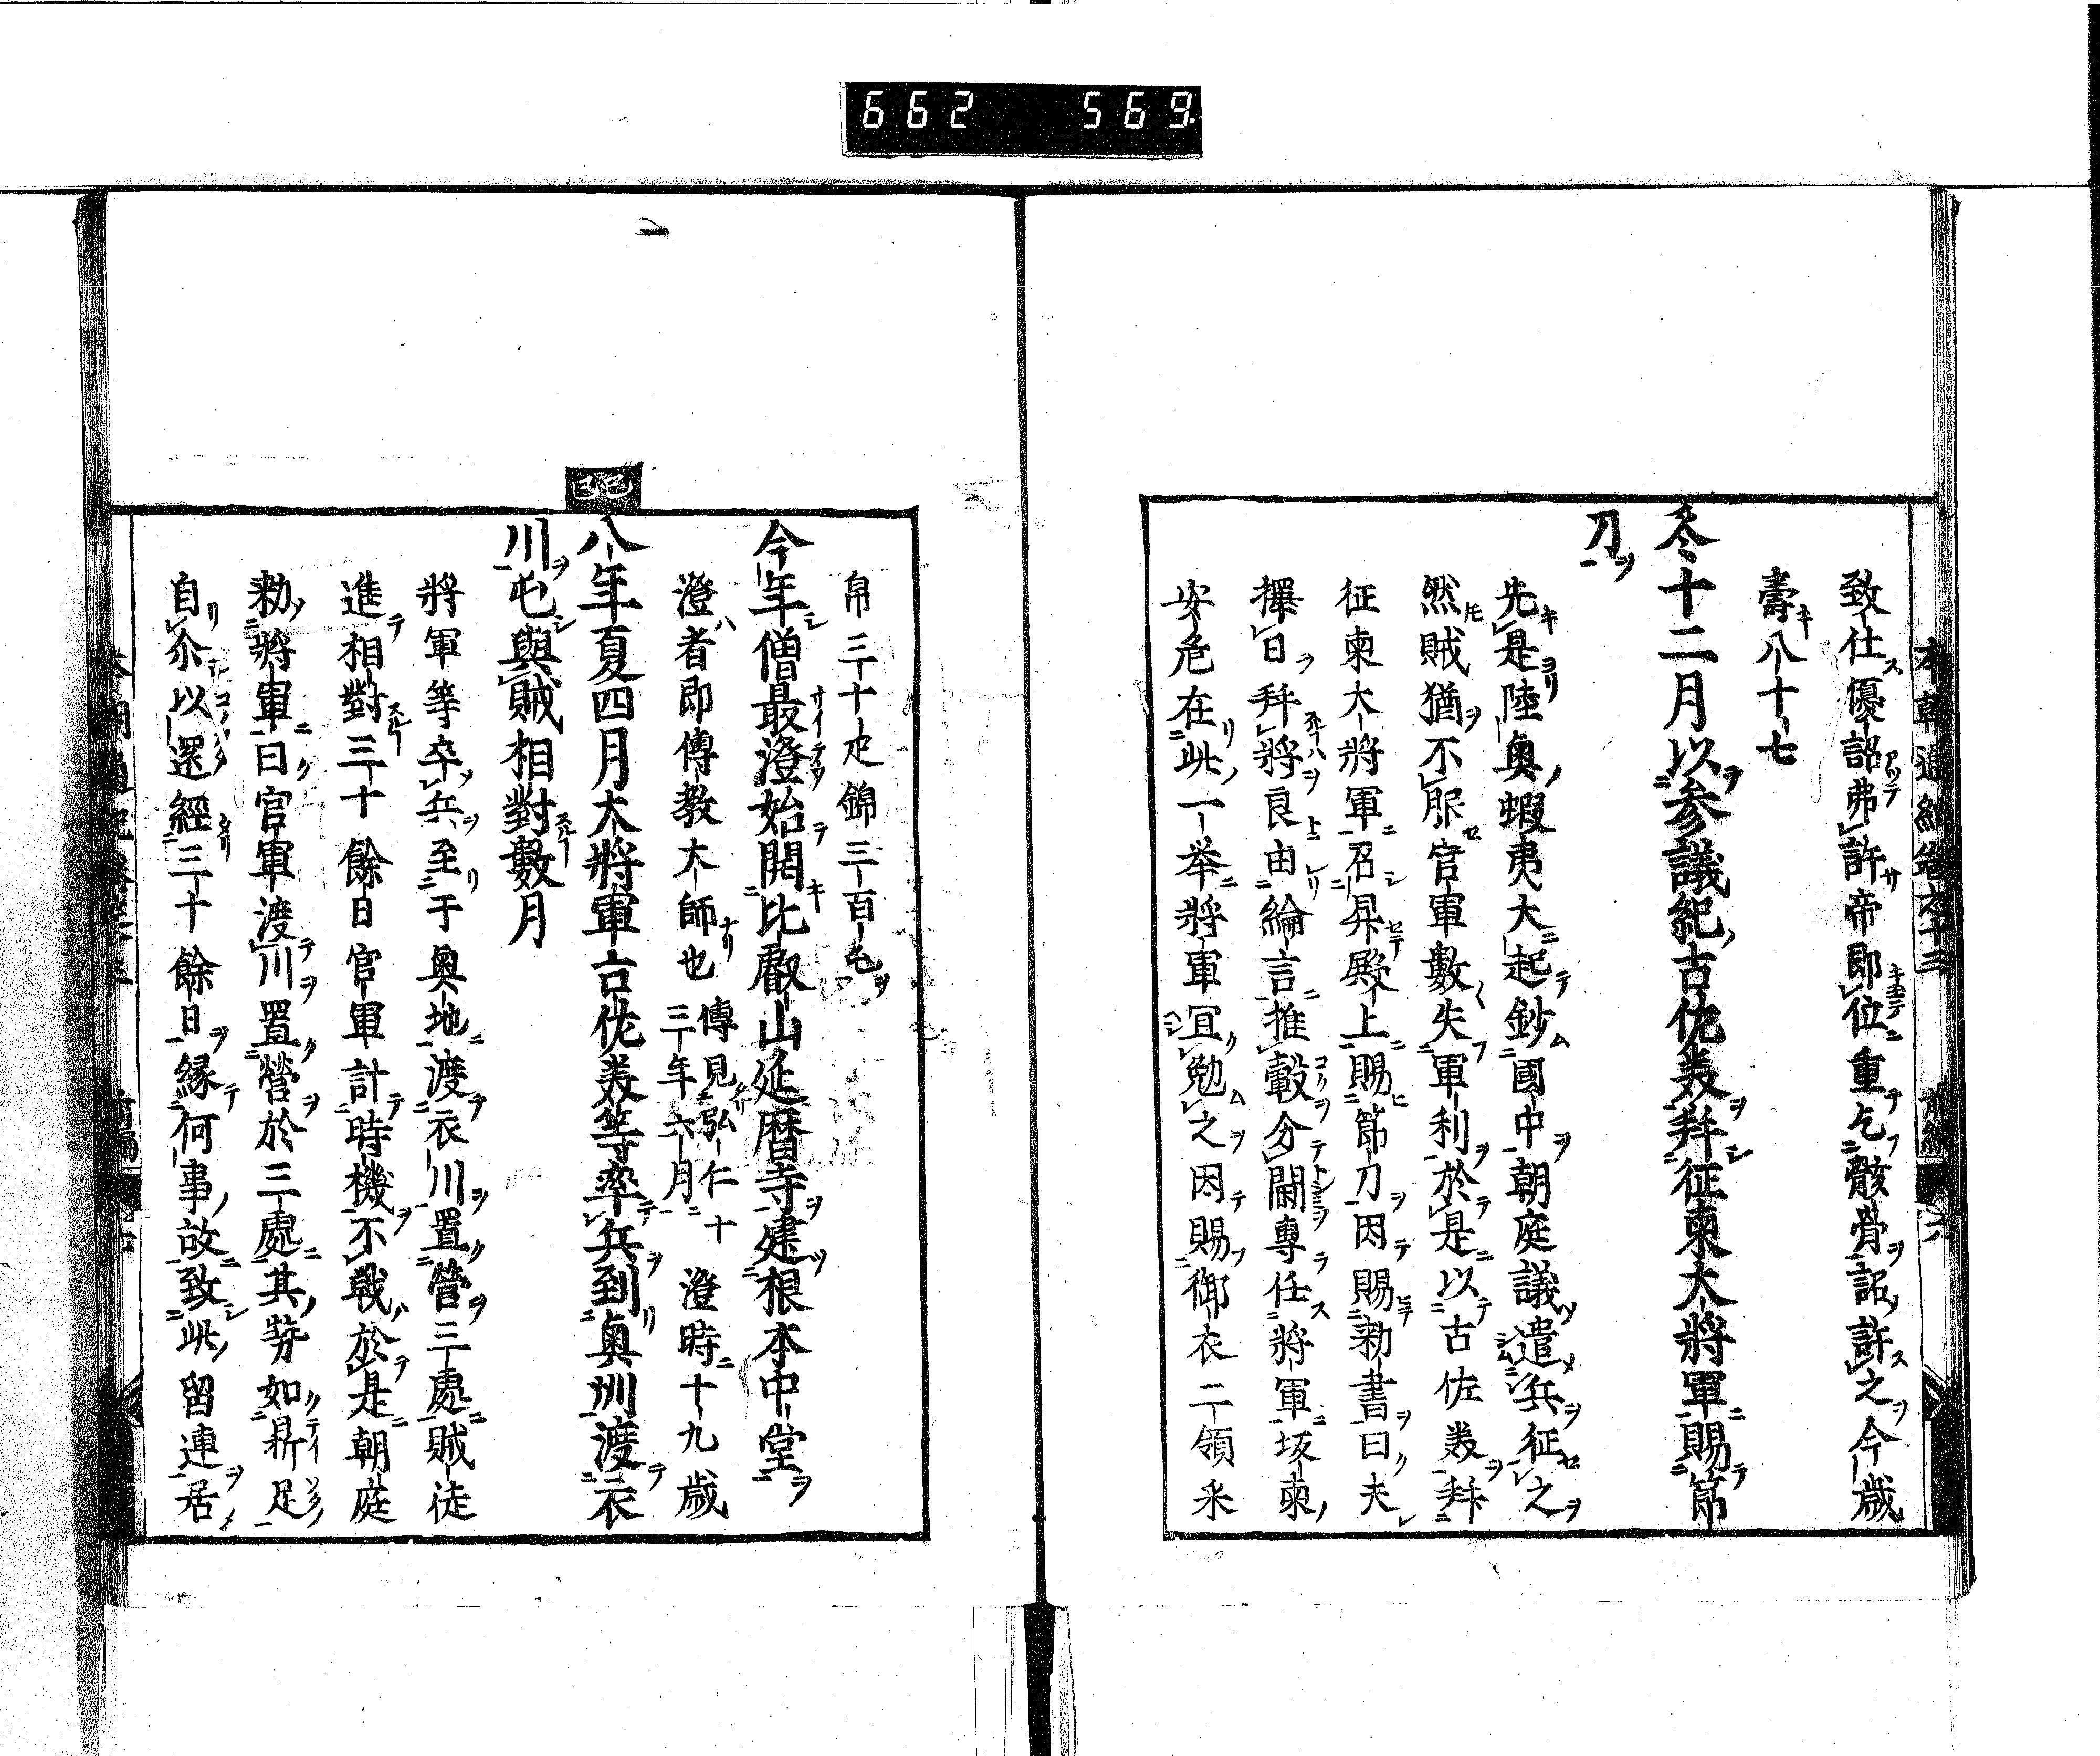 662 569
致仕優詔弗許帝即位重乞骸骨詔許之今歲
壽八十七
冬十二月以参議紀古佐美拜征東大將軍賜節
刀
先是陸奧蝦夷大起鈔國中朝庭議遣兵征之
然賊猶不服官軍數失軍利於是以古佐美拜
征東大將軍召昇殿上賜節刀因賜勅書曰夫
擇日拜將良由綸言推轂分閫專任將軍坂東
安危在此一举將軍宜勉之因賜御衣二領采
帛三十疋錦三百屯
今年僧最澄始開比叡山延暦寺建根本中堂
澄者即傳教大師也傳見弘仁十三年六月澄時十九歲
己巳
八年夏四月大將軍古佐美等率兵到奥州渡衣
川屯與賊相對數月
將軍等卒兵至于奥地渡衣川置營三處賊徒
進相對三十餘日官軍計時機不戰於是朝庭
勅將軍曰官軍渡川置營於三處其勢如鼎足
自尒以還經三十餘日縁何事故致此留連居